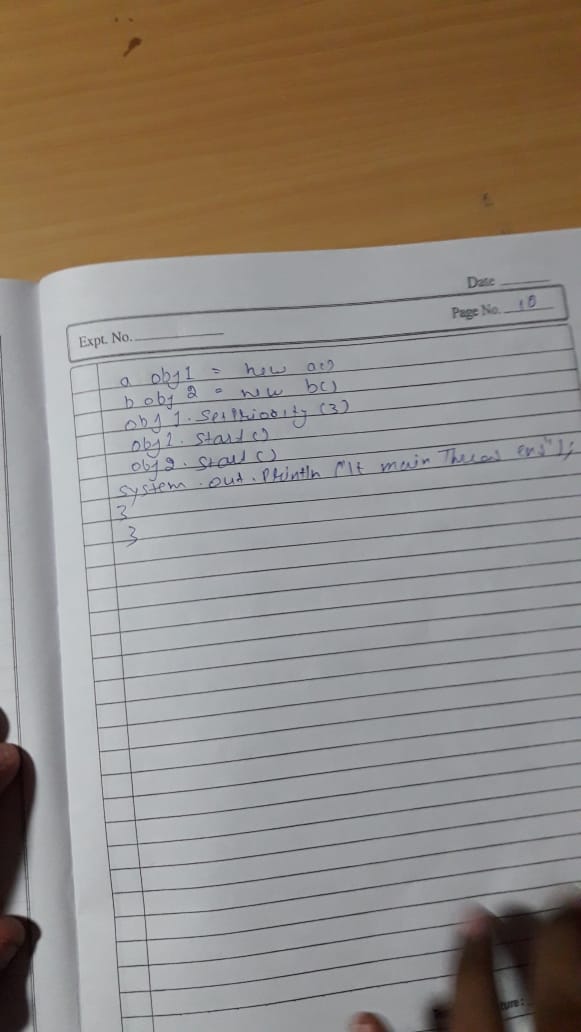 Date
Page No. 18
Expt. No.
a obj1 = new a()
b obj 2 = new b()
obj 1. setPriority (3)
obj1. start ()
obj2. start ()
system .out. println ("\t main Thread ens");
}
}
ture: